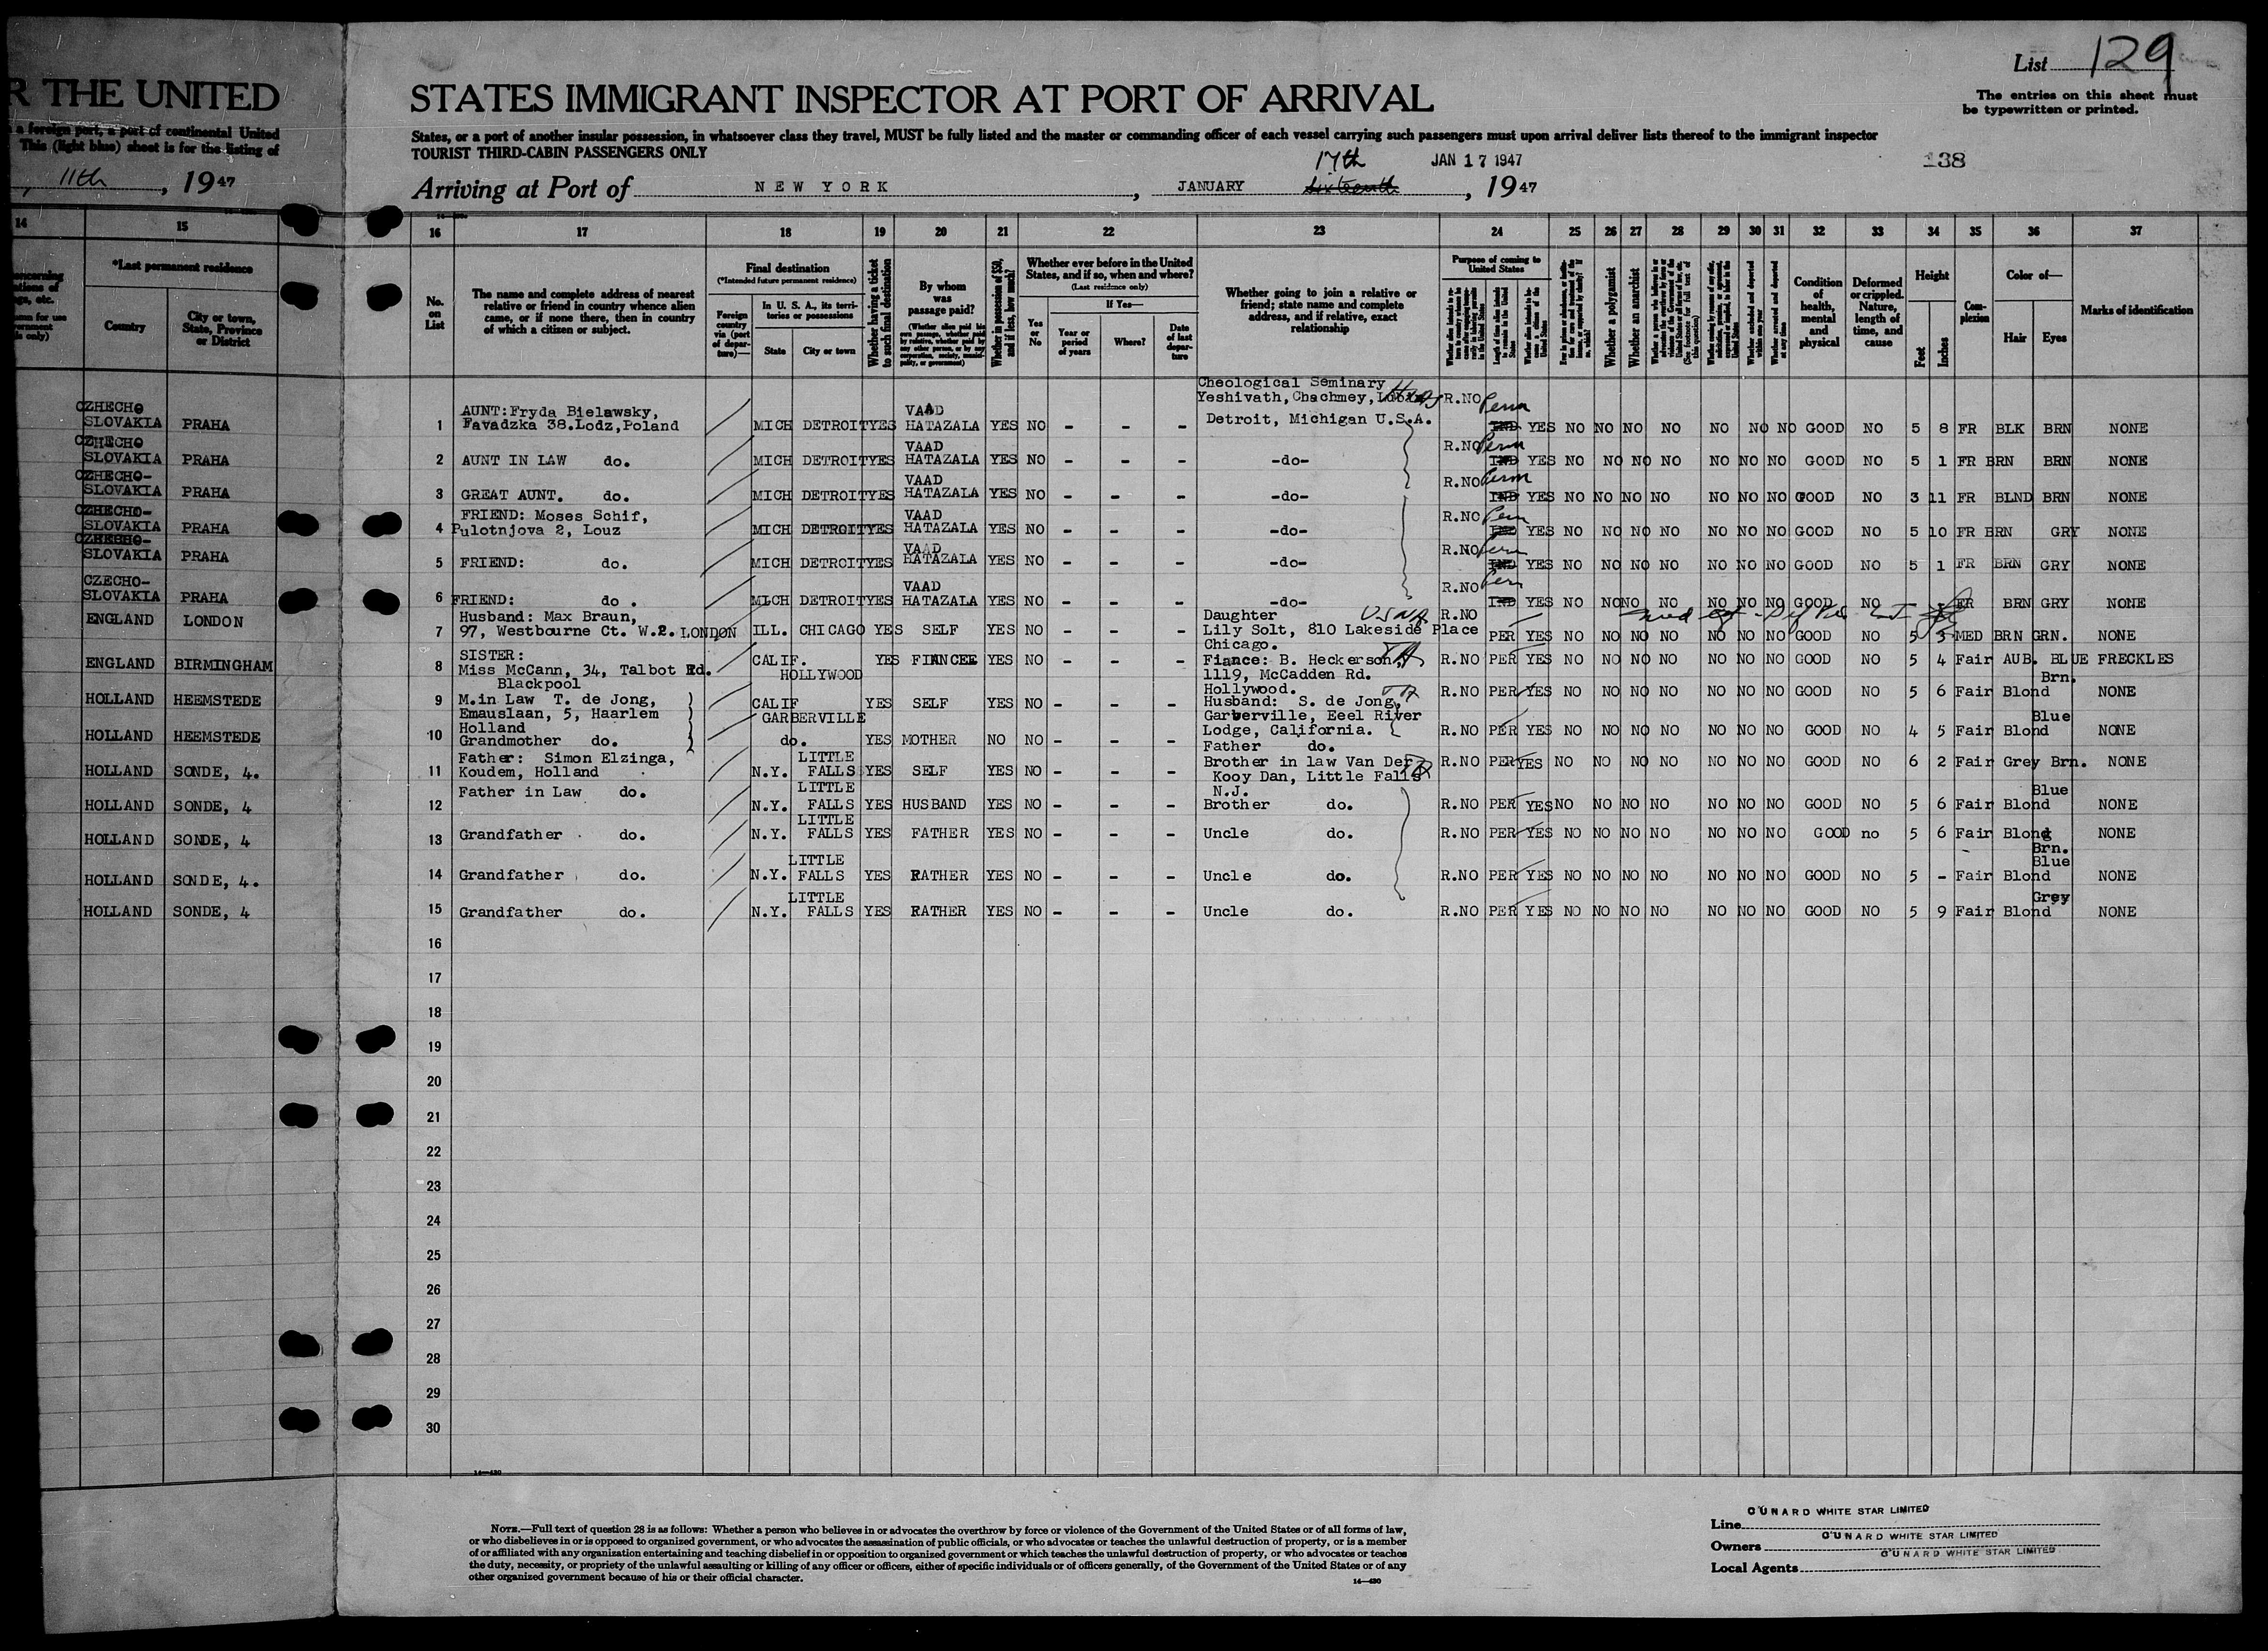 List 129
R THE UNITED
STATES IMMIGRANT INSPECTOR AT PORT OF ARRIVAL
The entries on this sheet must
be typewritten or printed.
a foreign port, a port of continental United
This (light blue) sheet is for the listing of
States, or a port of another insular possession, in whatsoever class they travel, MUST be fully listed and the master or commanding officer of each vessel carrying such passengers must upon arrival deliver lists thereof to the immigrant inspector
TOURIST THIRD-CABIN PASSENGERS ONLY
17th JAN 17 1947 138
, 11th, 1947
Arriving at Port of NEW YORK, JANUARY sixteenth, 1947
14 15 16 17 18 19 20 21 22 23 24 25 26 27 28 29 30 31 32 33 34 35 36 37
*Last permanent residence
Country
City or town, State, Province or District
No. on List
The name and complete address of nearest relative or friend in country whence alien came, or if none there, then in country of which a citizen or subject.
Final destination
(*Intended future permanent residence)
Foreign country via (port of departure)—
In U. S. A., its territories or possessions
State
City or town
Whether having a ticket to such final destination
By whom was passage paid?
(Whether alien paid his own passage, whether paid by relative, whether paid by any other person, or by any corporation, society, municipality, or government)
Whether in possession of $50, and if less, how much?
Whether ever before in the United States, and if so, when and where?
(Last residence only)
Yes or No
If Yes—
Year or period of years
Where?
Date of last departure
Whether going to join a relative or friend; state name and complete address, and if relative, exact relationship
Purpose of coming to United States
Length of time alien intends to remain in the United States
Whether a polygamist
Whether an anarchist
(See footnote for full text of this question)
Whether arrested and deported at any time
Condition of health, mental and physical
Deformed or crippled. Nature, length of time, and cause
Height
Feet
Inches
Complexion
Color of—
Hair
Eyes
Marks of identification
Cheological Seminary
Yeshivath, Chachmey,
CZHECHO
SLOVAKIA PRAHA 1 AUNT: Fryda Bielawsky,
Favadzka 38.Lodz,Poland MICH DETROIT YES VAAD HATAZALA YES NO - - - Detroit, Michigan U.S.A. R.NO Perm IND YES NO NO NO NO NO NO NO GOOD NO 5 8 FR BLK BRN NONE
CZHECHO
SLOVAKIA PRAHA 2 AUNT IN LAW do. MICH DETROIT YES VAAD HATAZALA YES NO - - - -do- R.NO Perm IND YES NO NO NO NO NO NO NO GOOD NO 5 1 FR BRN BRN NONE
CZHECHO-
SLOVAKIA PRAHA 3 GREAT AUNT. do. MICH DETROIT YES VAAD HATAZALA YES NO - - - -do- R.NO Perm IND YES NO NO NO NO NO NO NO GOOD NO 3 11 FR BLND BRN NONE
CZHECHO-
SLOVAKIA PRAHA 4 FRIEND: Moses Schif,
Pulotnjova 2, Louz MICH DETROIT YES VAAD HATAZALA YES NO - - - -do- R.NO Perm IND YES NO NO NO NO NO NO NO GOOD NO 5 10 FR BRN GRY NONE
CZHECHO-
SLOVAKIA PRAHA 5 FRIEND: do. MICH DETROIT YES VAAD HATAZALA YES NO - - - -do- R.NO Perm IND YES NO NO NO NO NO NO NO GOOD NO 5 1 FR BRN GRY NONE
CZECHO-
SLOVAKIA PRAHA 6 FRIEND: do. MICH DETROIT YES VAAD HATAZALA YES NO - - - -do- R.NO Perm IND YES NO NO NO NO NO NO NO GOOD NO FR BRN GRY NONE
ENGLAND LONDON 7 Husband: Max Braun,
97, Westbourne Ct. W.2. LONDON ILL. CHICAGO YES SELF YES NO - - - Daughter
Lily Solt, 810 Lakeside Place
Chicago. R.NO PER YES NO NO NO NO NO NO NO GOOD NO 5 3 MED BRN GRN. NONE
ENGLAND BIRMINGHAM 8 SISTER:
Miss McCann, 34, Talbot Rd.
Blackpool CALIF. HOLLYWOOD YES FIANCEE YES NO - - - Fiance: B. Heckerson
1119, McCadden Rd.
Hollywood. R.NO PER YES NO NO NO NO NO NO NO GOOD NO 5 4 Fair AUB. BLUE FRECKLES
HOLLAND HEEMSTEDE 9 M.in Law T. de Jong,
Emauslaan, 5, Haarlem
Holland CALIF GARBERVILLE YES SELF YES NO - - - Husband: S. de Jong,
Garberville, Eeel River
Lodge, California. R.NO PER YES NO NO NO NO NO NO NO GOOD NO 5 6 Fair Blond Brn. NONE
HOLLAND HEEMSTEDE 10 Grandmother do. do. YES MOTHER NO NO - - - Father do. R.NO PER YES NO NO NO NO NO NO NO GOOD NO 4 5 Fair Blond Blue NONE
HOLLAND SONDE, 4. 11 Father: Simon Elzinga,
Koudem, Holland N.Y. LITTLE FALLS YES SELF YES NO - - - Brother in law Van Der
Kooy Dan, Little Falls
N.J. R.NO PER YES NO NO NO NO NO NO NO GOOD NO 6 2 Fair Grey Brn. NONE
HOLLAND SONDE, 4 12 Father in Law do. N.Y. LITTLE FALLS YES HUSBAND YES NO - - - Brother do. R.NO PER YES NO NO NO NO NO NO NO GOOD NO 5 6 Fair Blond Blue NONE
HOLLAND SONDE, 4 13 Grandfather do. N.Y. LITTLE FALLS YES FATHER YES NO - - - Uncle do. R.NO PER YES NO NO NO NO NO NO NO GOOD no 5 6 Fair Blond Brn. NONE
HOLLAND SONDE, 4. 14 Grandfather do. N.Y. LITTLE FALLS YES FATHER YES NO - - - Uncle do. R.NO PER YES NO NO NO NO NO NO NO GOOD NO 5 - Fair Blond Blue NONE
HOLLAND SONDE, 4 15 Grandfather do. N.Y. LITTLE FALLS YES FATHER YES NO - - - Uncle do. R.NO PER YES NO NO NO NO NO NO NO GOOD NO 5 9 Fair Blond Grey NONE
16
17
18
19
20
21
22
23
24
25
26
27
28
29
30
14—430
NOTE.—Full text of question 28 is as follows: Whether a person who believes in or advocates the overthrow by force or violence of the Government of the United States or of all forms of law,
or who disbelieves in or is opposed to organized government, or who advocates the assassination of public officials, or who advocates or teaches the unlawful destruction of property, or is a member
of or affiliated with any organization entertaining and teaching disbelief in or opposition to organized government or which teaches the unlawful destruction of property, or who advocates or teaches
the duty, necessity, or propriety of the unlawful assaulting or killing of any officer or officers, either of specific individuals or of officers generally, of the Government of the United States or of any
other organized government because of his or their official character.
14—430
Line CUNARD WHITE STAR LIMITED
Owners CUNARD WHITE STAR LIMITED
Local Agents CUNARD WHITE STAR LIMITED